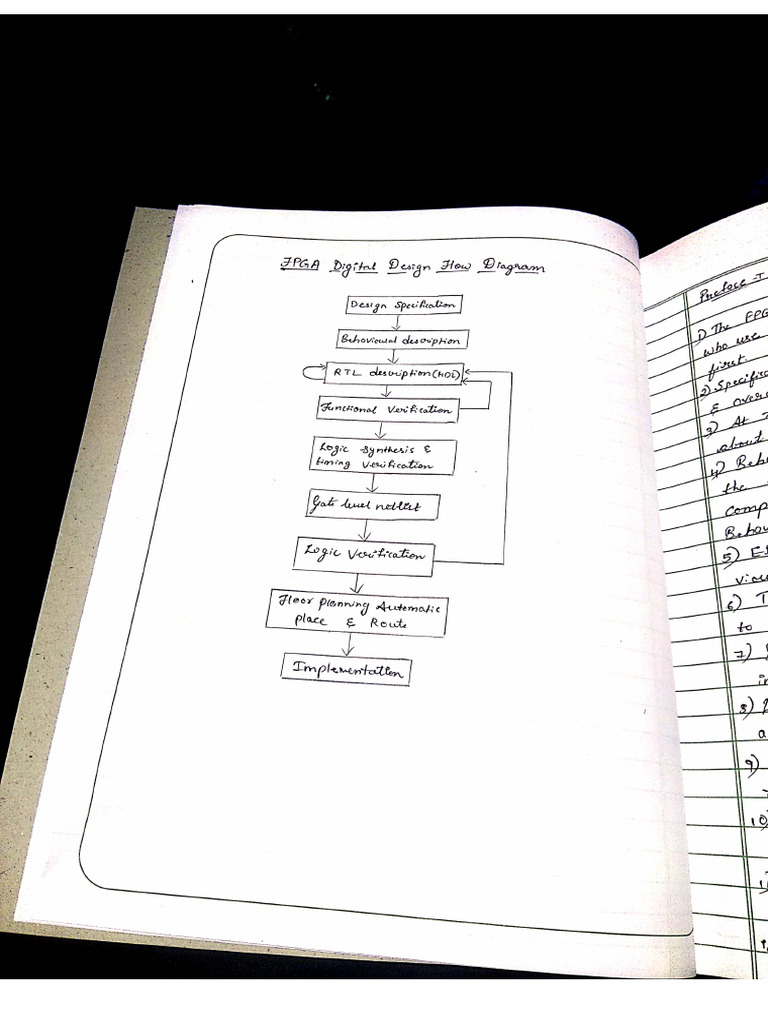 FPGA Digital Design Flow Diagram
Design Specification
Behavioural description
RTL description (HDL)
Functional Verification
Logic Synthesis &
timing Verification
Gate level netlist
Logic Verification
Floor planning Automatic
place & Route
Implementation
1) The FPG
who use
first.
2) Specific
& over
3) At
about
4) Beha
the
comp
Behav
5)
6) T
to
7)
in
8)
a
9)
10)